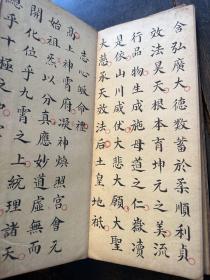 含弘廣大德數蓄於柔順利貞
效法昊天根本育坤元之美流
行品物生成施母道之仁嶽瀆
是依山川咸伏大悲大願大聖
大慈承天效法后土皇地祇
志心皈命禮
高上神霄府凝神煥照宮會元
始祖炁以分真應妙道虛無而
開化位乎九霄之上統理諸天
總乎十極之中